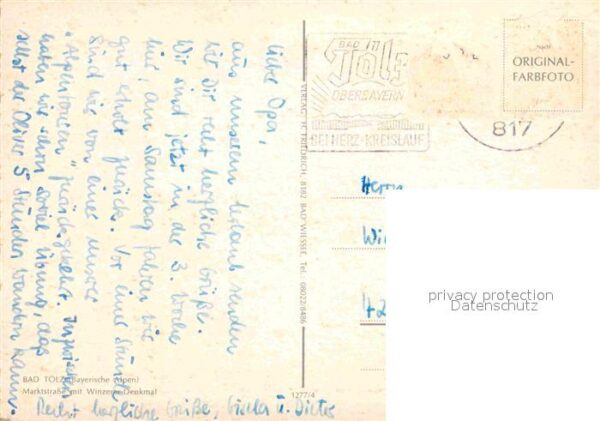 Liebe Opa,
aus unserem Urlaub senden
wir Dir recht herzliche Grüße.
Wir sind jetzt in der 3. Woche
hier, am Samstag fahren wir
gut erholt zurück. Vor einer Stunde
sind wir von einer unserer
"Alpentouren" zurückgekehrt. Inzwischen
haben wir schon soviel Übung, daß
selbst der Oliver 5 Stunden wandern kann.
Recht herzliche Grüße, Gisela u. Dieter
BAD TÖLZ (Bayerische Alpen)
Marktstraße mit Winzerer-Denkmal
1277/4
VERLAG H. FRIEDRICH, 8182 BAD WIESSEE, Tel. 08022/8486
BAD
TÖLZ
OBERBAYERN
BEI HERZ-KREISLAUF
817
Nach
ORIGINAL-
FARBFOTO
Herrn
Wi
42
privacy protection
Datenschutz